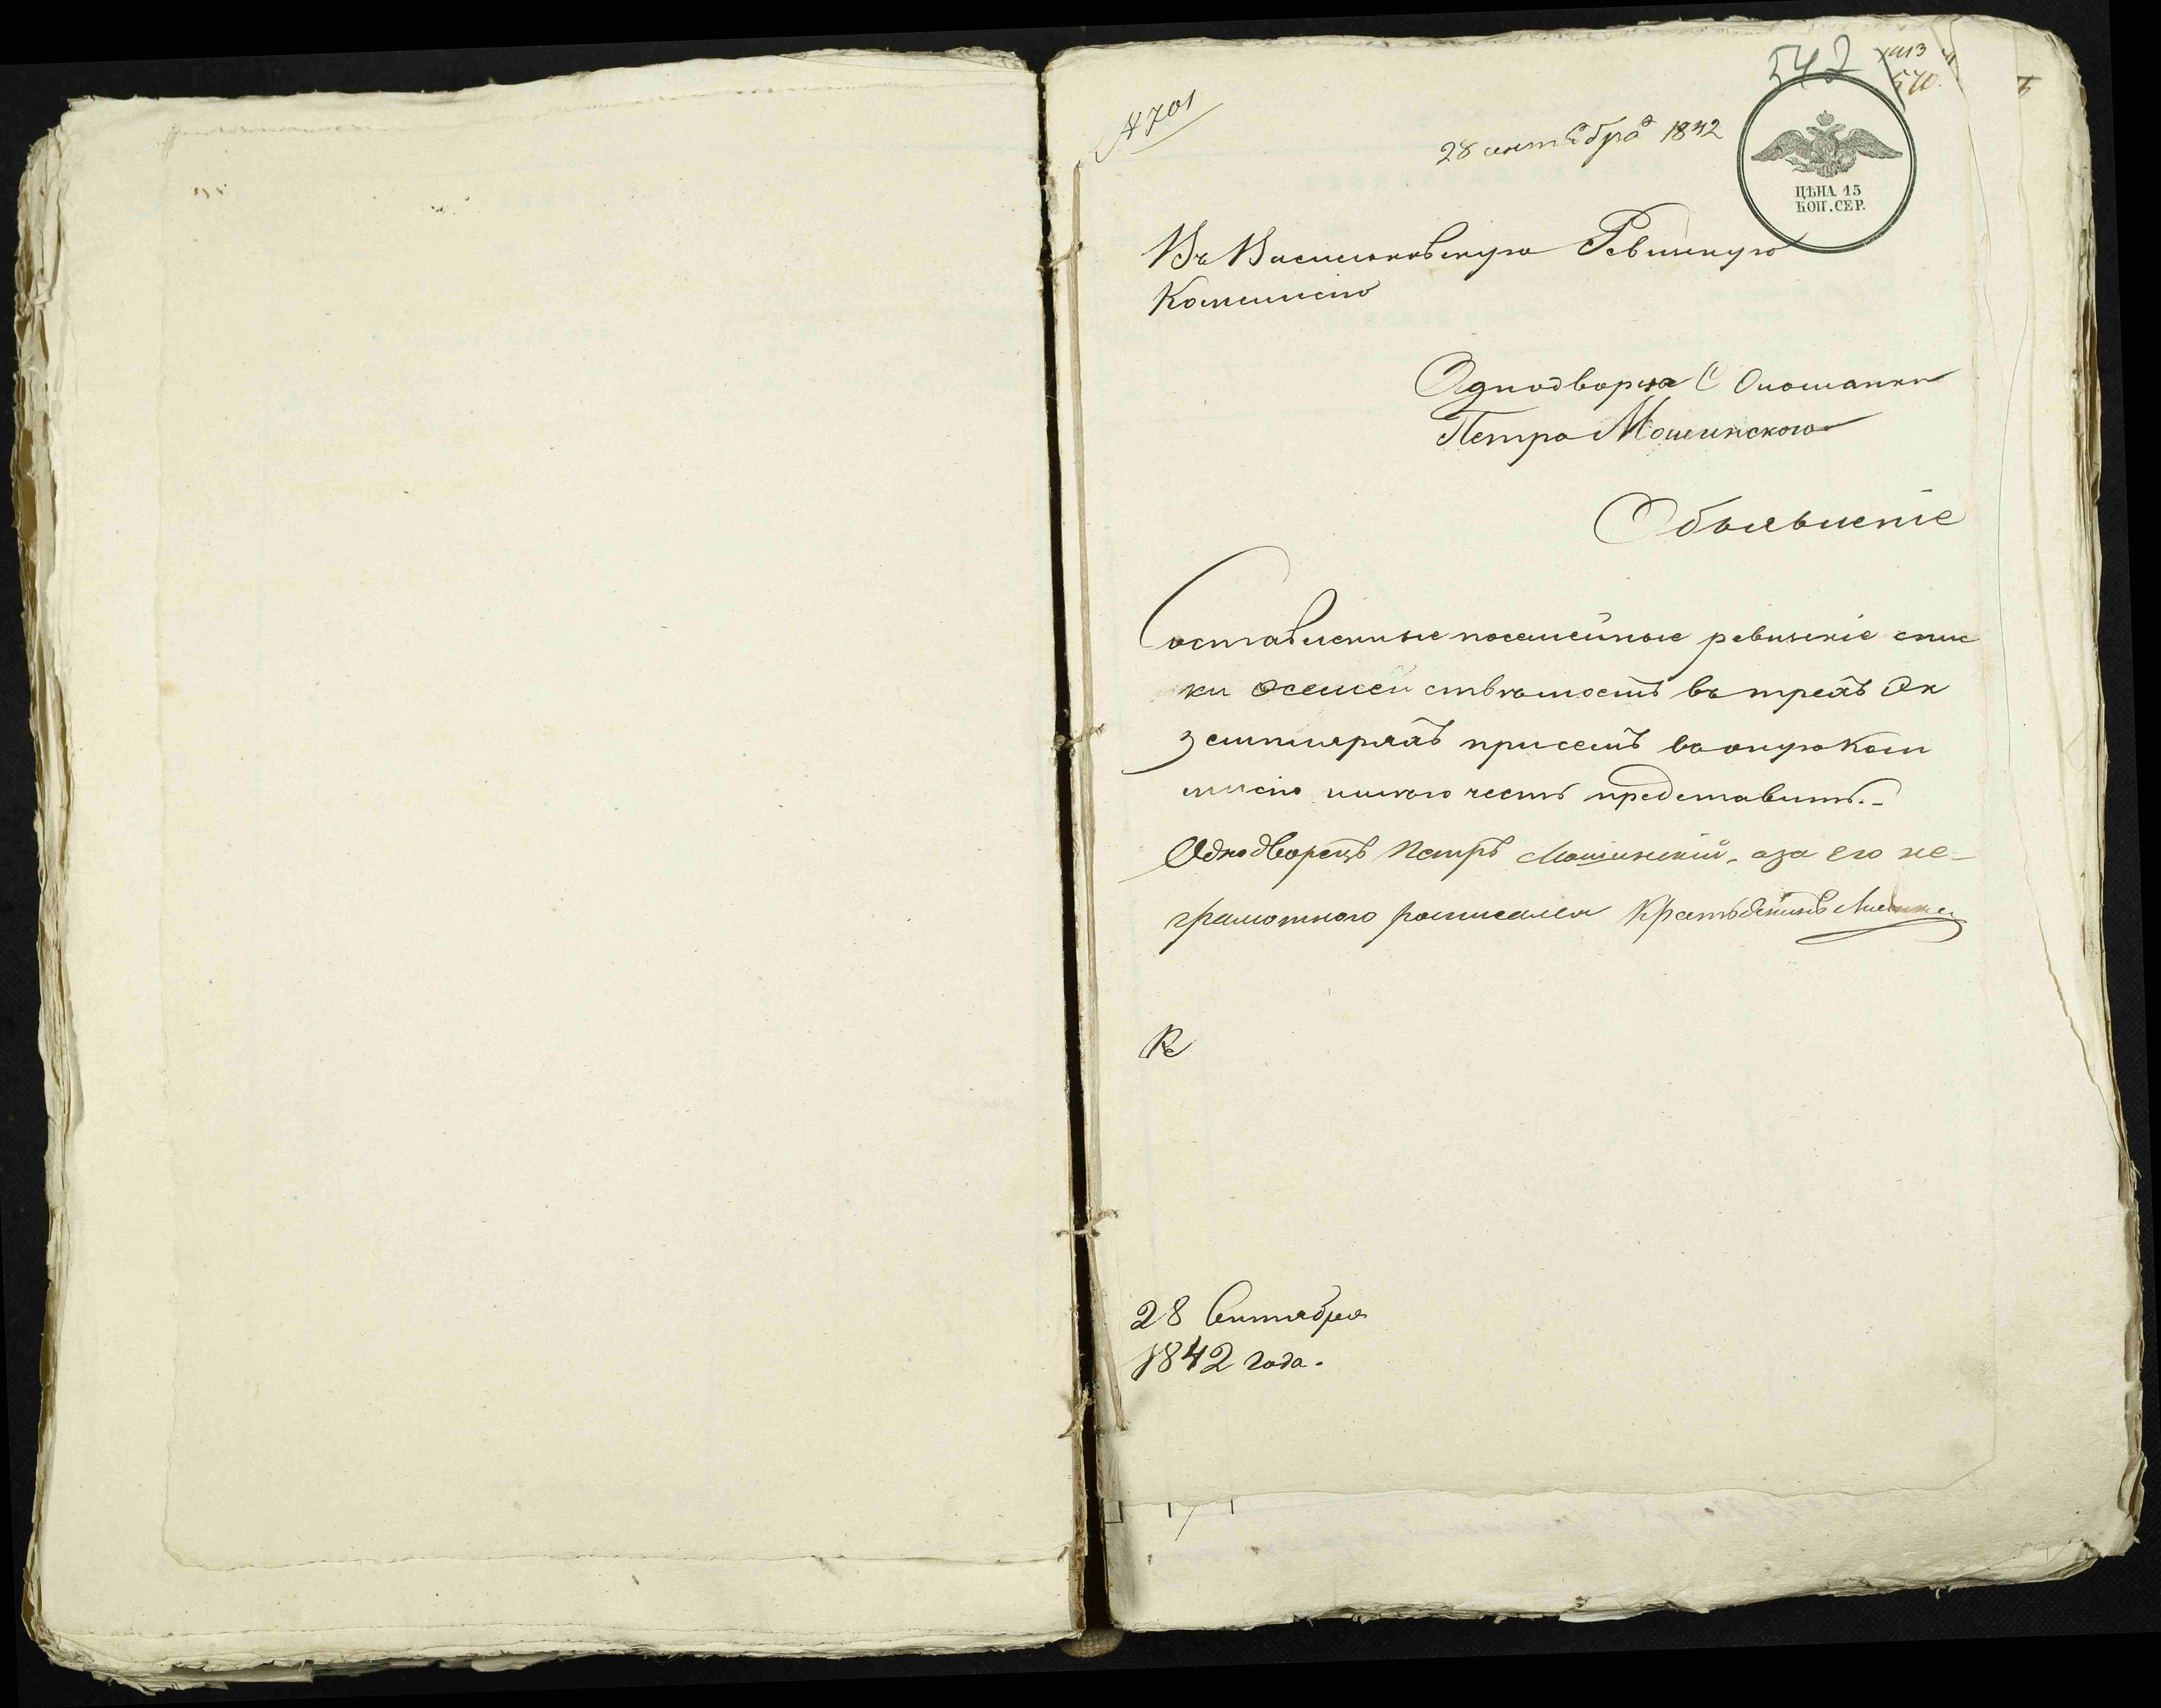 542
570
4701
28 сентября 1842
ЦѢНА 15
КОП. СЕР.
Въ Васильковскую Ревизкую
Комисию
Однодворца С Ольшанки
Петра Мошинского
Объявленіе
Составленные посемейные ревизкіе спис
ки о семействѣ моемъ въ трехъ Эк
земплярахъ при семъ во оную Ком
мисію имѣю честь представить.-
Однодворецъ Петръ Мошинскій, а за его не-
грамотного росписался
28 Сентября
1842 года.